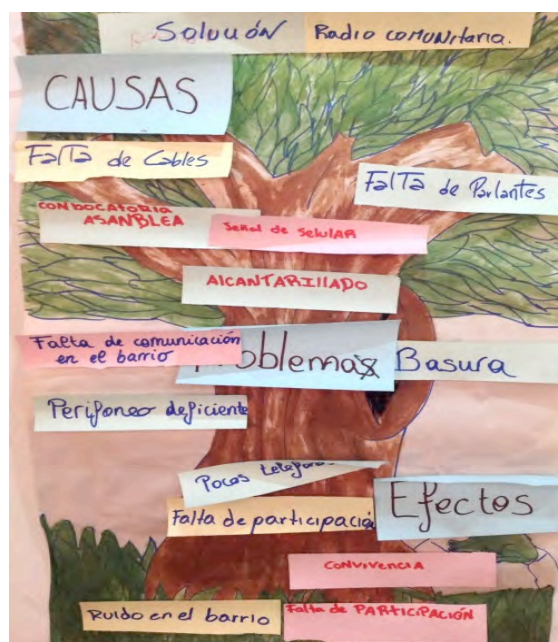 Solución Radio COMUNitaria.
CAUSAS
FalTa de Cables
FalTa de Parlantes
CONVOCATORIA
ASANBLEA
Señal de SelulAR
AlCANTARIllADO
Falta de comunicación
en el barrio
Problemas
Basura
Perifoneo deficiente
Pocos telefono
Efectos
Falta de participació
CONVIVENCIA
Ruido en el barrio
Falta de PARTICIPACIÓN